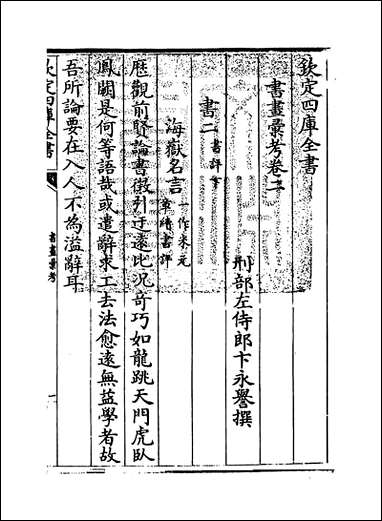 欽定四庫全書
書畫彙考卷二
刑部左侍郎卞永譽撰
書二書評
海嶽名言一作米元章緒書評
歴觀前賢論書徵引迂逺比况奇巧如龍跳天門虎臥
鳳闕是何等語哉或遣辭求工去法愈逺無益學者故
吾所論要在入人不為溢辭耳
欽定四庫全書
書畫彙考
一